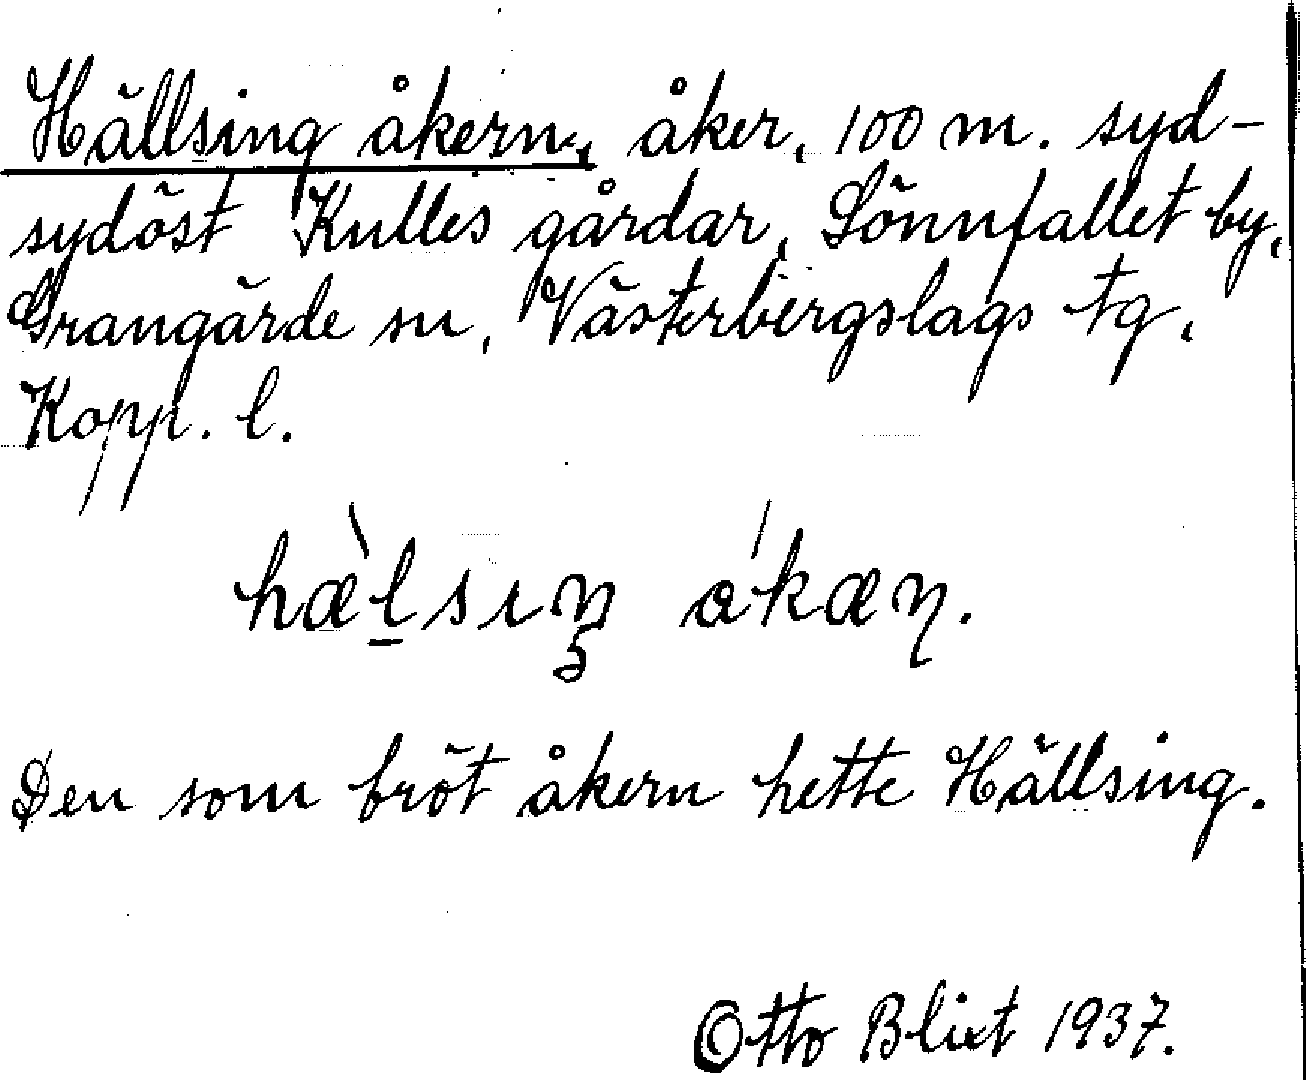 Hällsing åkern, åker, 100 m. syd-
sydöst Kulles gårdar, Sönnfallet by,
Grangärde sn, Västerbergslags tg.
Kopp. l.
hæ̀lsıŋ åkæn.
Den som bröt åkern hette Hällsing.
Otto Blixt 1937.